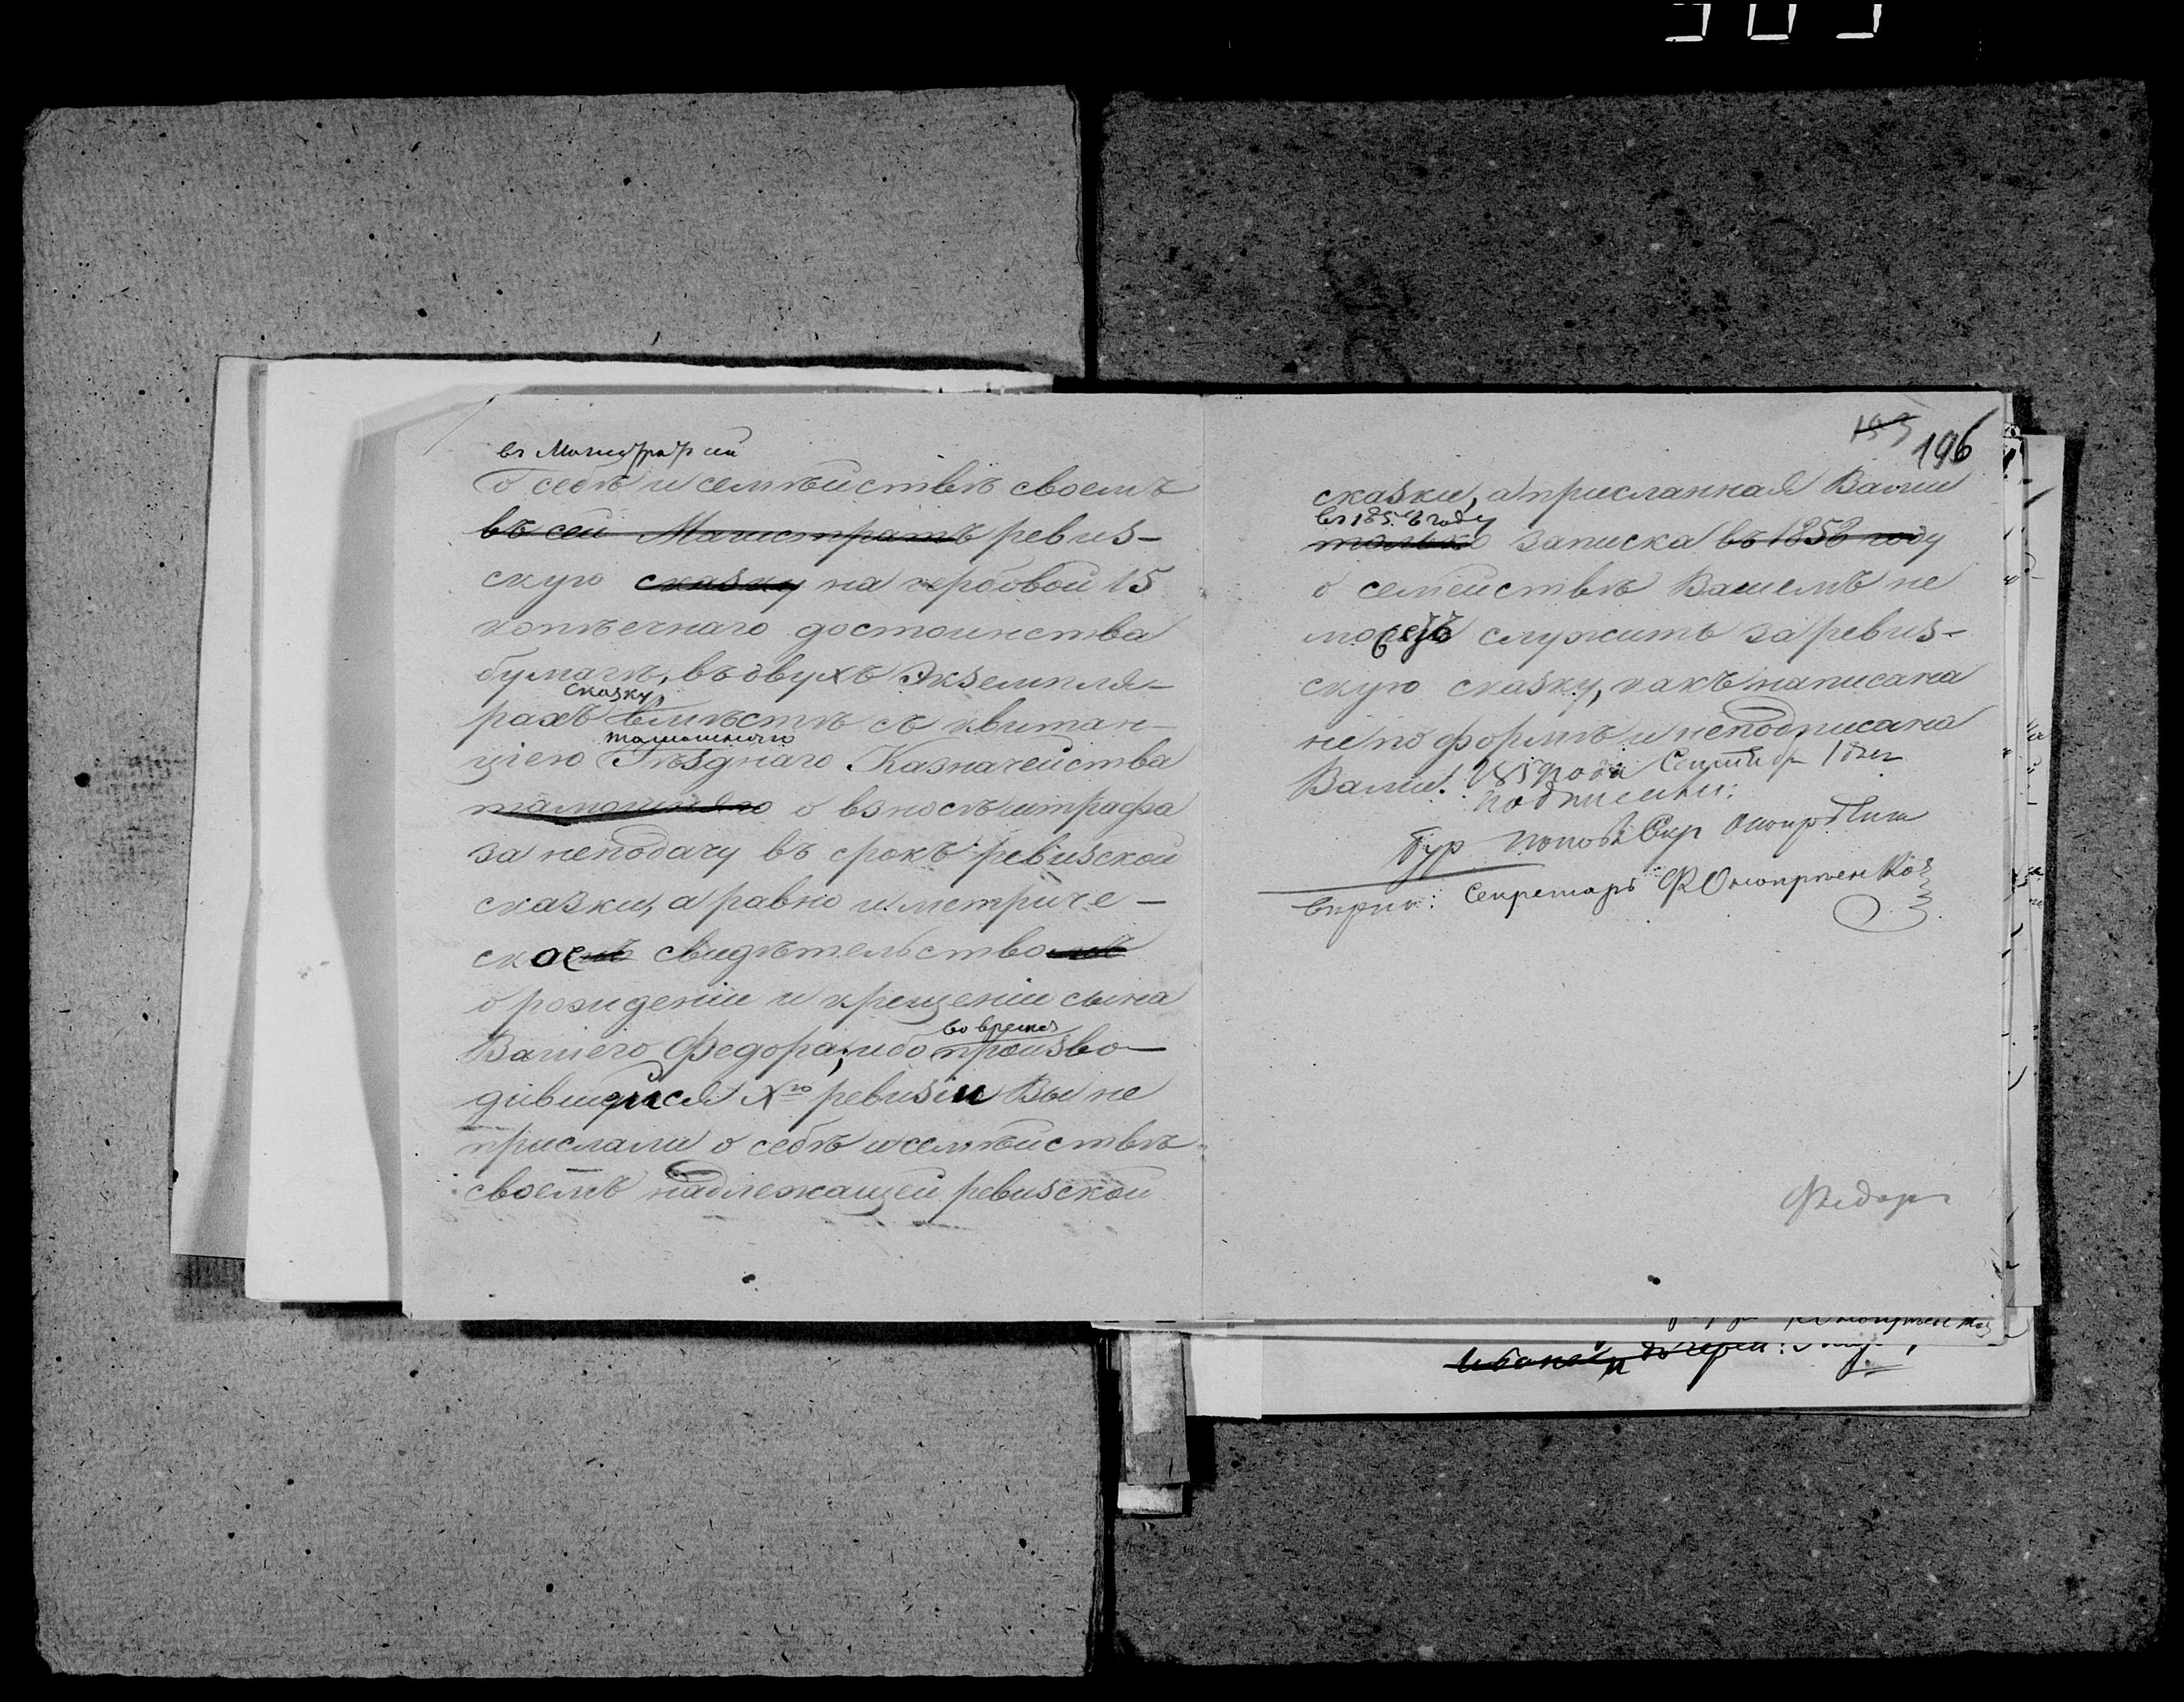 въ Магистратъ сей
о себѣ и семѣйствѣ своемъ
въ сей Магистратъ ревиз-
скую сказку на гербовой 15
копѣечнаго достоинства
бумагѣ, въ двухъ экземпля-
сказку,
рахъ вмѣстѣ съ квитан-
тамошняго
цiею Уѣзднаго Казначейства
тамошняго о взносѣ штрафа
за неподачу въ срокъ ревизской
сказки, а равно и метриче-
ское свидѣтельство
о рожденiи и крещенiи сына
во время
Вашего Федора; ибо произво-
дившейся Хго ревизiи Вы не
прислали о себѣ и семѣйствѣ
своемъ надлежащей ревизской
195
196
сказки, а присланная Вами
въ 1858 году
только записка въ 1858 году
о семействѣ Вашемъ не
можетъ служить за ревиз-
скую сказку, какъ написана
не по формѣ и неподписана
Вами. 1859 года Сентября 1 дня
подписали:
Бур Поповъ Скр
Скрѣп: Секретарь
Федоръ